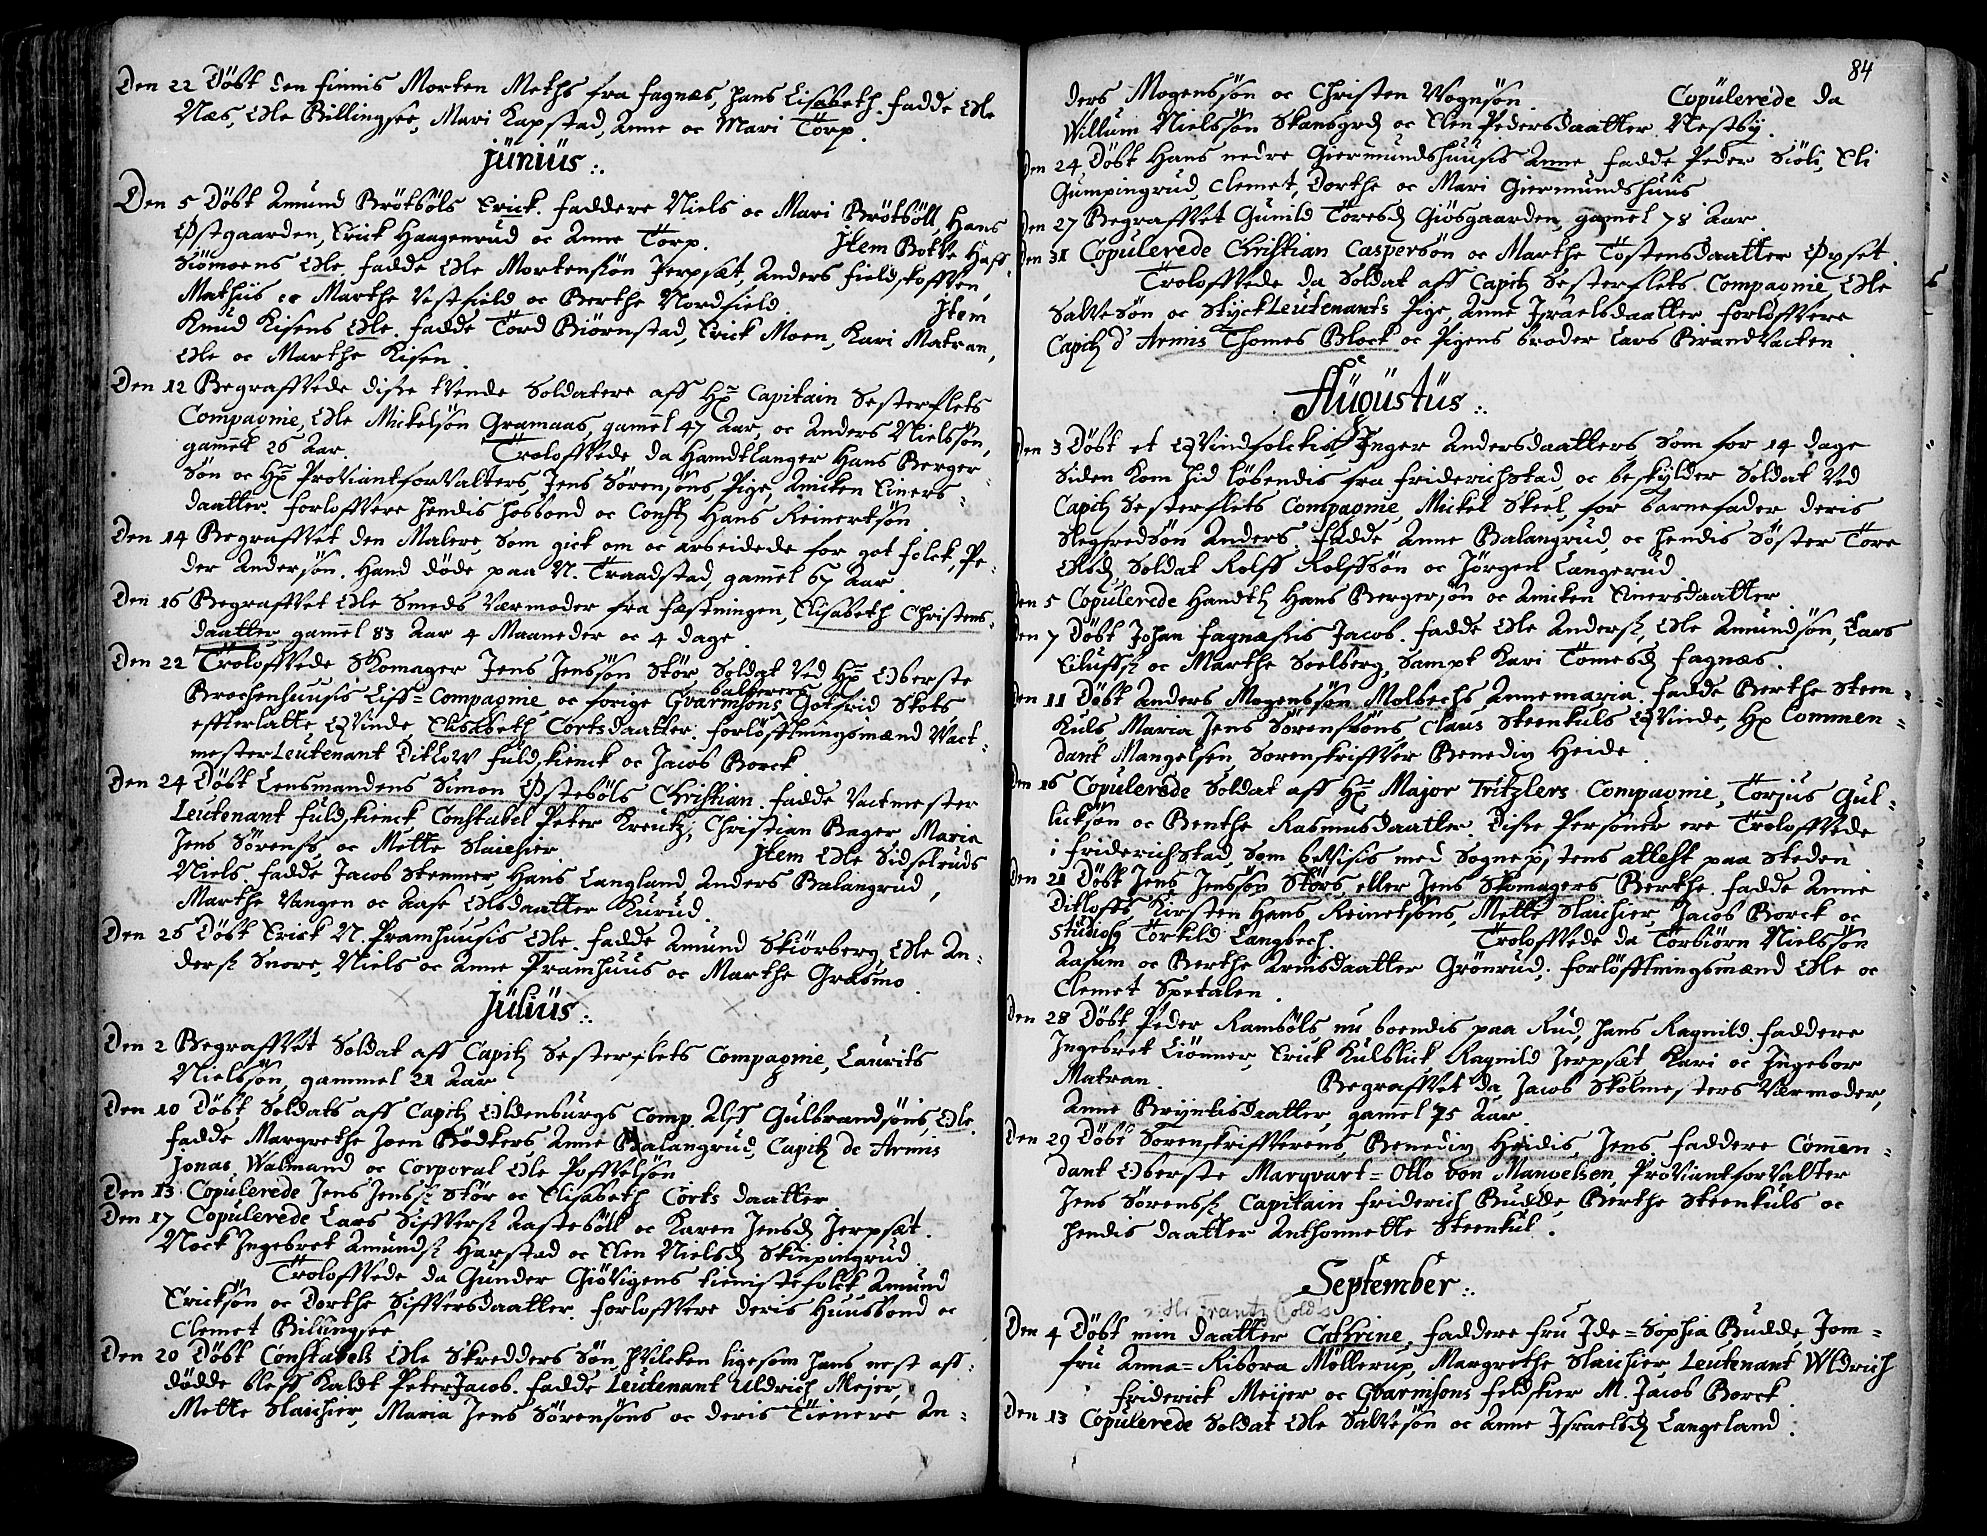 Den 22 Döbt den finnis Morten Meths fra fagnæs, hans Lisabeth. fadde Ole
Næs, Ole Billingsøe, Mari Kapstad, Anne oc Mari Törp.
Jünius :.
Den 5 Döbt Amund Brötsöls Erick. faddere Niels oc Mari Brötsöll, Hans
Østgaarden, Erick Haagenrud oc Anne Törp. Jtem Botte Haff-
siömoens Ole. fadde Ole Mortensön Jerpsæt, Anders fieldstofften,
Mathiis oc Marthe Vestfield oc Berthe Nordfield. Jtem
Knud Kisens Ole. fadde Törd Biörnstad, Erick Moen, Kari Matran,
Ole oc Marthe Kisen.
Den 12 Begraffvede disse tvende Soldatere aff Hr Capitain Sesterflets
Compagnie, Ole Mickelsön Gramaas, gamel 47 Aar, oc Anders Nielssön,
gammel 26 Aar. Trolofvede da Handtlanger Hans Berger-
sön oc Hr Proviantforvalters, Jens Sörensöns Pige, Anicken Einers-
daatter forloffvere hendis hosbond oc Const Hans Reinertsön
Den 14 Begraffvet den Malere, som gick om oc arbeidede for got folck, Pe-
der Andersön. Hand döde paa N. Traadstad, gamel 67 Aar.
Den 16 Begraffvet Ole Smeds Værmoder fra fæstningen, Elisabeth Christens-
daatter gamel 83 Aar 4 Maaneder oc 4 dage
Den 22 Trolofvede Skomager Jens Jenssön Stör, Soldat ved Hr Oberste
Brochenhuusis Liff=Compagnie oc forige Gvarnisons balberers Gotfrid Skots
effterlatte Qvinde, Elisabeth Cortsdaatter. forlöfftningsmænd Vact-
mester Leutenant Ditlow fuldskienck oc Jacob Borck
Den 24 Döbt Lensmandens Simon Østebôls Christian. fadde Vactmester
Leutenant fuldskienck Constabel Peter Kreutz, Christian Bager Maria
Jens Sörens oc Mette Slaichier Jtem Ole Sidselruds
Niels. fadde Jacob Stenner, Hans Langland, Anders Balangrud,
Marthe Vangen oc Aase Olsdaatter Kurud.
Den 26 Döbt Erick N. Pramhuusis Ole. fadde Amund Skiörberg, Ole An-
ders Snore, Niels oc Anne Pramhuus oc Marthe Grasmo.
Jülius :.
Den 2 Begraffvet Soldat aff Capit Sesterflets Compagnie, Laurits
Nielssön, gammel 21 Aar
Den 10 Döbt Soldats aff Capit Oldenburgs Comp. Alff Gulbrandsöns, Ole.
fadde Margrethe Joen Bödkers Anne Balangrud, Capit de Armis
Jonas Walmand oc Corporal Ole Poffvelsön
Den 13 Copulerede Jens Jens Stör oc Elisabeth Corts daatter
Den 17 Copulerede Lars Siffvers Aastebôll oc Karen Jensd Jerpsæt.
Nock Ingebret Amunds Harstad oc Elen Nielsd Skinpingrud
Trolofvede da Gunder Giövigens tienistefolck Amund
Ericksön oc Dorthe Siffversdaatter. forloffvere deris Huusbond oc
Clemet Billingsøe
Den 20 Döbt Constabels Ole Skredders Sön, hvilcken ligesom hans nest aff-
dödde bleff kaldt Peter Jacob. fadde Leutenant Uldrich Mejer,
Mette Slaichier, Maria Jens Sörensöns oc deris tienere An-
84
ders Mogenssön oc Christen Vognsön. Copulerede da
Willum Nielssön Skansgrd oc Elen Pedersdaatter Nestby.
Den 24 Döbt Hans nedre Giermundshuusis Anne fadde Peder Siöli, Eli
Gumpingrud, Clemet, Dorthe oc Mari Giermundshuus
Den 27 Begraffvet Gunild Töresd Giösgaarden, gamel 78 Aar
Den 31 Copulerede Christian Caspersön oc Marthe Töstensdaatter Øxset.
Trolofvede da Soldat aff Capit Sesterflets Compagnie Ole
Salvesön oc StyckLeutenants Pige, Anne Israelsdaatter forloffvere
Capit d'Armis Thomes Block oc Pigens broder Lars Brandvacten
Augustus :.
Den 3 Döbt et Qvindfolckis Inger Andersdaatters som for 14 dage
siden kom hid löbendis fra friderichstad, oc beskylder Soldat ved
Capit Sesterflets Compagnie, Mickel Skeel, for barnefader deris
Slegfredsön Anders. fadde Anne Balangrud, oc hendis Söster Töre
Olsd Soldat Rolff Rolfssön oc Jörgen Langerud.
Den 5 Copulerede Handtl Hans Bergersön oc Anicken Einersdaatter
Den 7 Döbt Johan fagnæssis Jacob. fadde Ole Anders, Ole Amundsön, Lars
Eiluffs oc Marthe Soelberg, sampt Kari Tomesd fagnæs.
Den 11 Döbt Anders Mogenssön Molbechs Annemaria fadde Berthe Steen-
kuls Maria Jens Sörensöns, Claus Steenkuls Qvinde, Hr Commen-
dant Mangelsen, Sorenskriffver Benedix Heide
Den 16 Copulerede Soldat aff Hr Major Tritzlers Compagnie, Torjus Gul-
licksön oc Benthe Rasmusdaatter. Disse Personer ere Trolofvede
i friderichstad, som bevisis med Sognepstens attest paa Steden
Den 21 Döbt Jens Jenssön Störs, eller Jens Skomagers Berthe. fadde Anne
Ditloffs Kirsten Hans Reinertsöns, Mette Slaichier, Jacob Borck oc
Studios Torkild Langbech. Trolofvede da Torbiörn Nielssön
Aasum oc Berthe Arnesdaatter Grönrud. forlöfftningsmænd Ole oc
Clemet Spetalen.
Den 28 Döbt Peder Ramsôls nu boendis paa Rud, hans Ragnild. faddere
Ingebret Liönner, Erick Kulblick Ragnild Jerpsæt Kari oc Ingebor
Matran. Begraffvet da Jacob Skolmesters Værmoder,
Anne Bryntisdaatter, gamel 75 Aar
Den 29 Döbt Sorenskriffverens Benedix Heidis, Jens. faddere Commen-
dant Oberste Marqvart=Otto von Mangelsen, Proviantforvalter
Jens Sörens, Capitain friderich Budde, Berthe Steenkuls oc
hendis daatter Anthonnette Steenkul.
September :.
ɔ: Hr Frantz Colds
Den 4 Döbt min daatter Cathrine, faddere fru Ide=Sophia Budde, Jom=
fru Anna=Ribora Möllerup, Margrethe Slaichier Leutenant Uldrich
friderick Meijer oc Gvarnisons feldskier M. Jacob Borck.
Den 13 Copulerede Soldat Ole Salvesön oc Anne Israelsd Langeland.